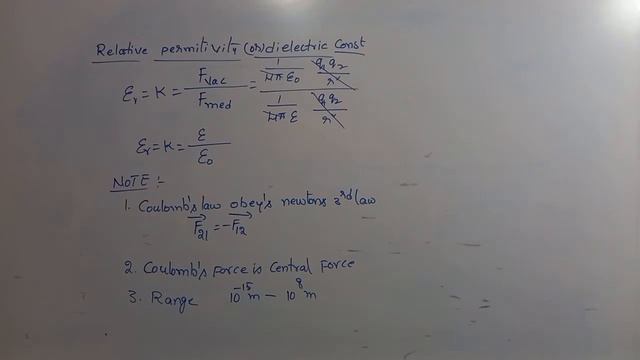 Relative permitivity (or) dielectric Const
εr = K = Fvac / Fmed = (1/4πε0 q1q2/r²) / (1/4πε q1q2/r²)
εr = K = ε / ε0
NOTE :-
1. Coulomb's law obey's newtons 3rd law
F21 = -F12
2. Coulomb's force is Central Force
3. Range 10^-15 m – 10^8 m